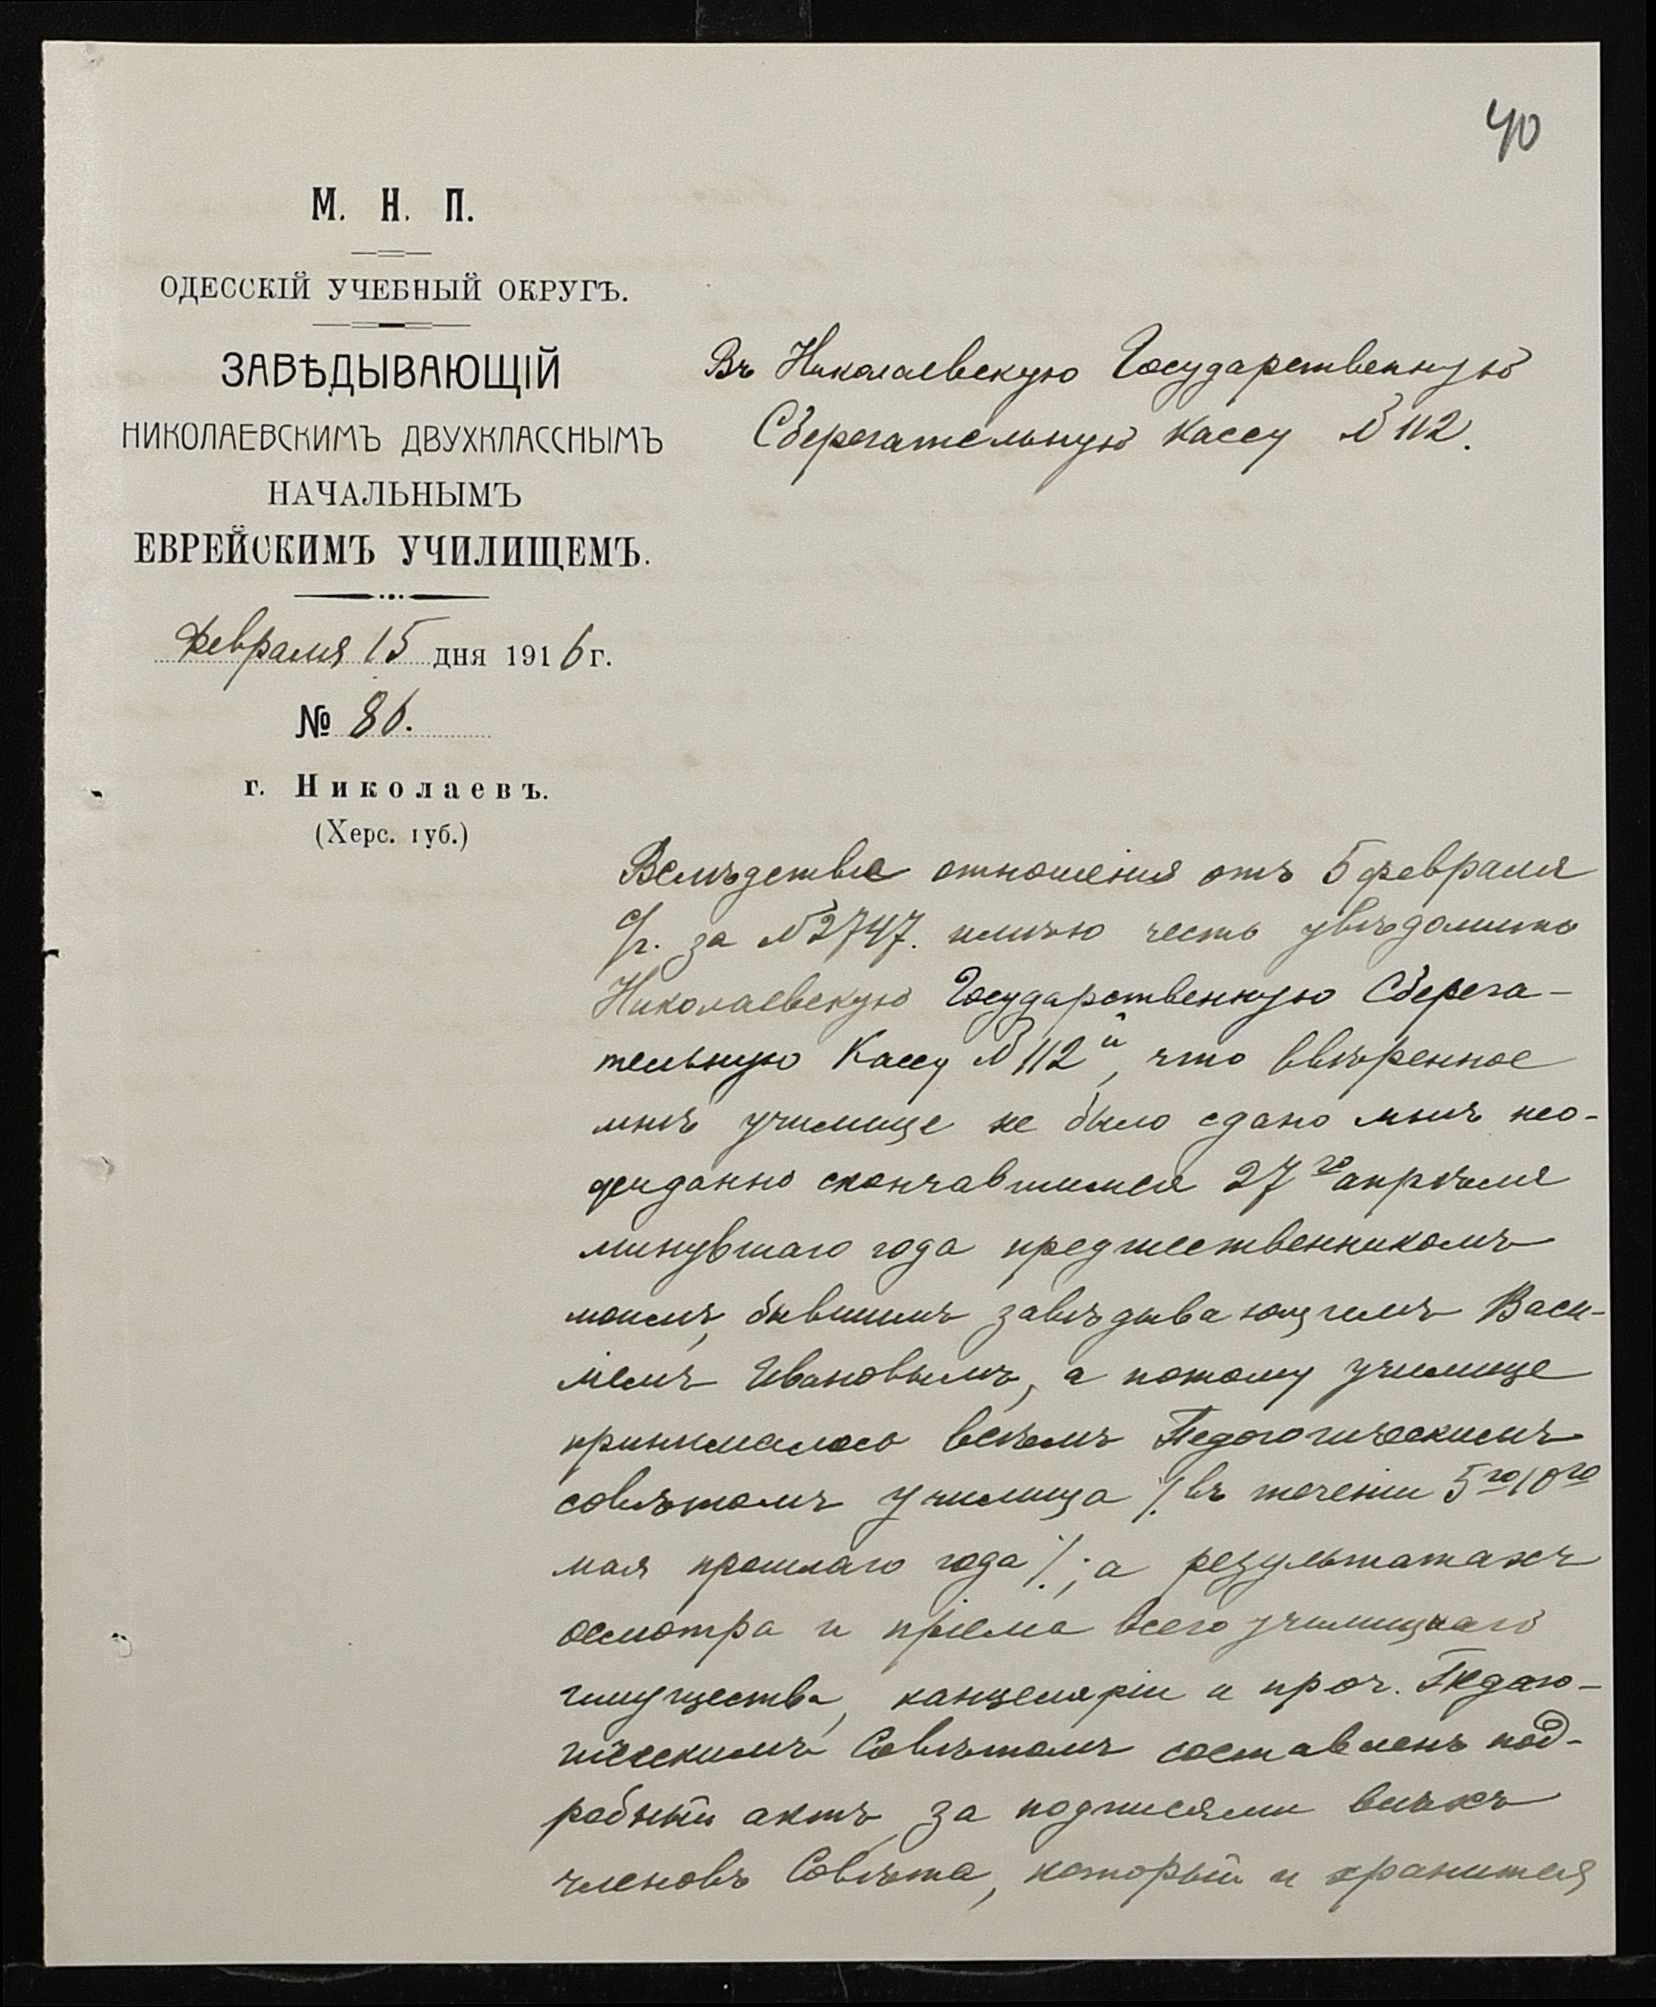 40
М. Н. П.
ОДЕССКІЙ УЧЕБНЫЙ ОКРУГЪ.
ЗАВѢДЫВАЮЩІЙ
НИКОЛАЕВСКИМЪ ДВУХКЛАССНЫМЪ
НАЧАЛЬНЫМЪ
ЕВРЕЙСКИМЪ УЧИЛИЩЕМЪ.
Февраля 15 дня 1916 г.
№ 86.
г. Николаевъ.
(Херс. губ.)
Въ Николаевскую Государственную
Сберегательную Кассу № 112.
Вслѣдствіе отношенія отъ 5 февраля
с/г. за № 2747. имѣю честь увѣдомить
Николаевскую Государственную Сберега-
тельную Кассу № 112й, что ввѣренное
мнѣ училище не было сдано мнѣ нео-
жиданно скончавшимся 27го апрѣля
минувшаго года предшественникомъ
моимъ, бывшимъ завѣдывающимъ Васи-
ліемъ Ивановымъ, а потому училище
принималось всѣмъ Педагогическимъ
совѣтомъ училища /въ теченіи 5го 10го
мая прошлаго года/; о результатахъ
осмотра и пріема всего училищнаго
имущества, канцеляріи и проч. Педаго-
гическимъ Совѣтомъ составленъ под-
робный актъ за подписями всѣхъ
членовъ Совѣта, который и хранится